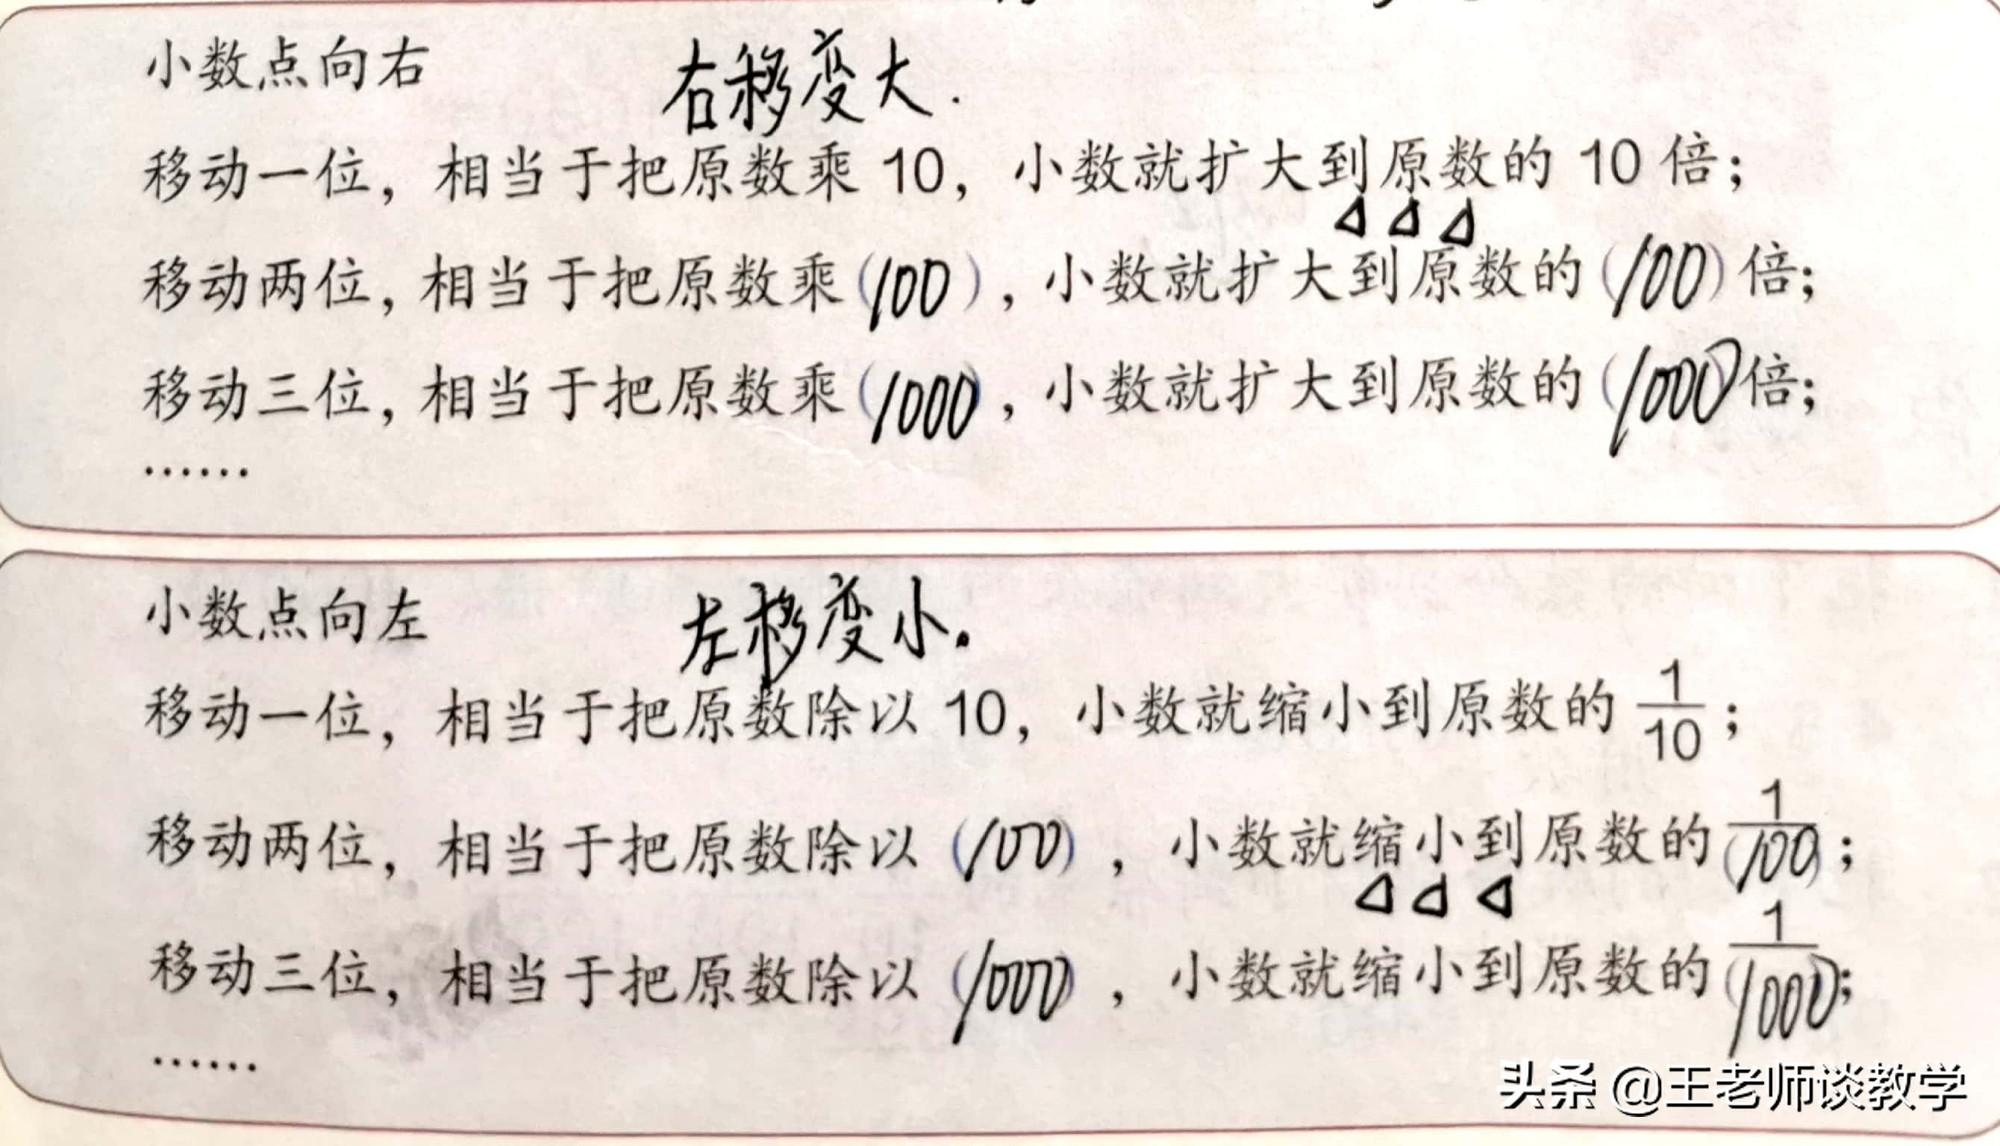 小数点向右 右移变大.
移动一位，相当于把原数乘 10，小数就扩大到原数的 10 倍；
移动两位，相当于把原数乘(100)，小数就扩大到原数的(100)倍；
移动三位，相当于把原数乘(1000)，小数就扩大到原数的(1000)倍；
……
小数点向左 左移变小.
移动一位，相当于把原数除以 10，小数就缩小到原数的 1/10；
移动两位，相当于把原数除以(100)，小数就缩小到原数的 1/(100)；
移动三位，相当于把原数除以(1000)，小数就缩小到原数的 1/(1000)；
……
头条 @王老师谈教学